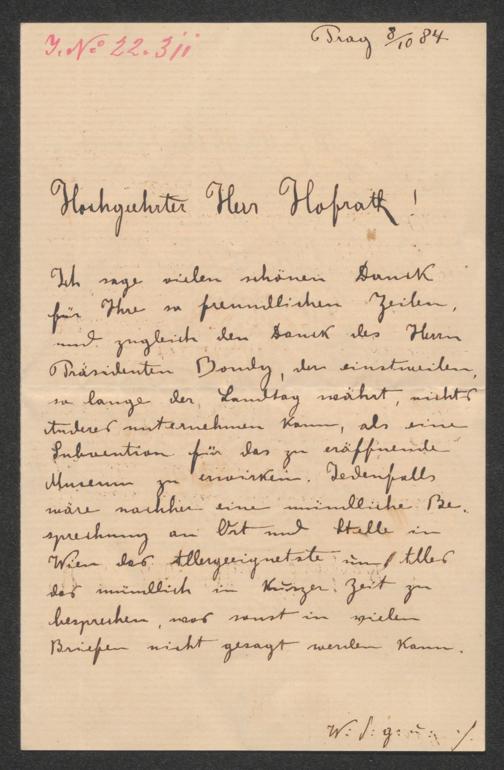 J. No 22. 3ii
Prag 8/10 84
Hochgeehrter Herr Hofrath!
Ich sage vielen schönen Danck
für Ihre so freundlichen Zeilen,
und zugleich den Danck des Herrn
Präsidenten Bondy, der einstweilen,
so lange der Landtag währt, nichts
Anderes unternehmen kann, als eine
Subvention für das zu eröffnende
Museum zu erwirken. Jedenfalls
wäre nachher eine mündliche Be-
sprechung an Ort und Stelle in
Wien das Allergeeignetste um Alles
das mündlich in kurzer Zeit zu
besprechen, was sonst in vielen
Briefen nicht gesagt werden kann.